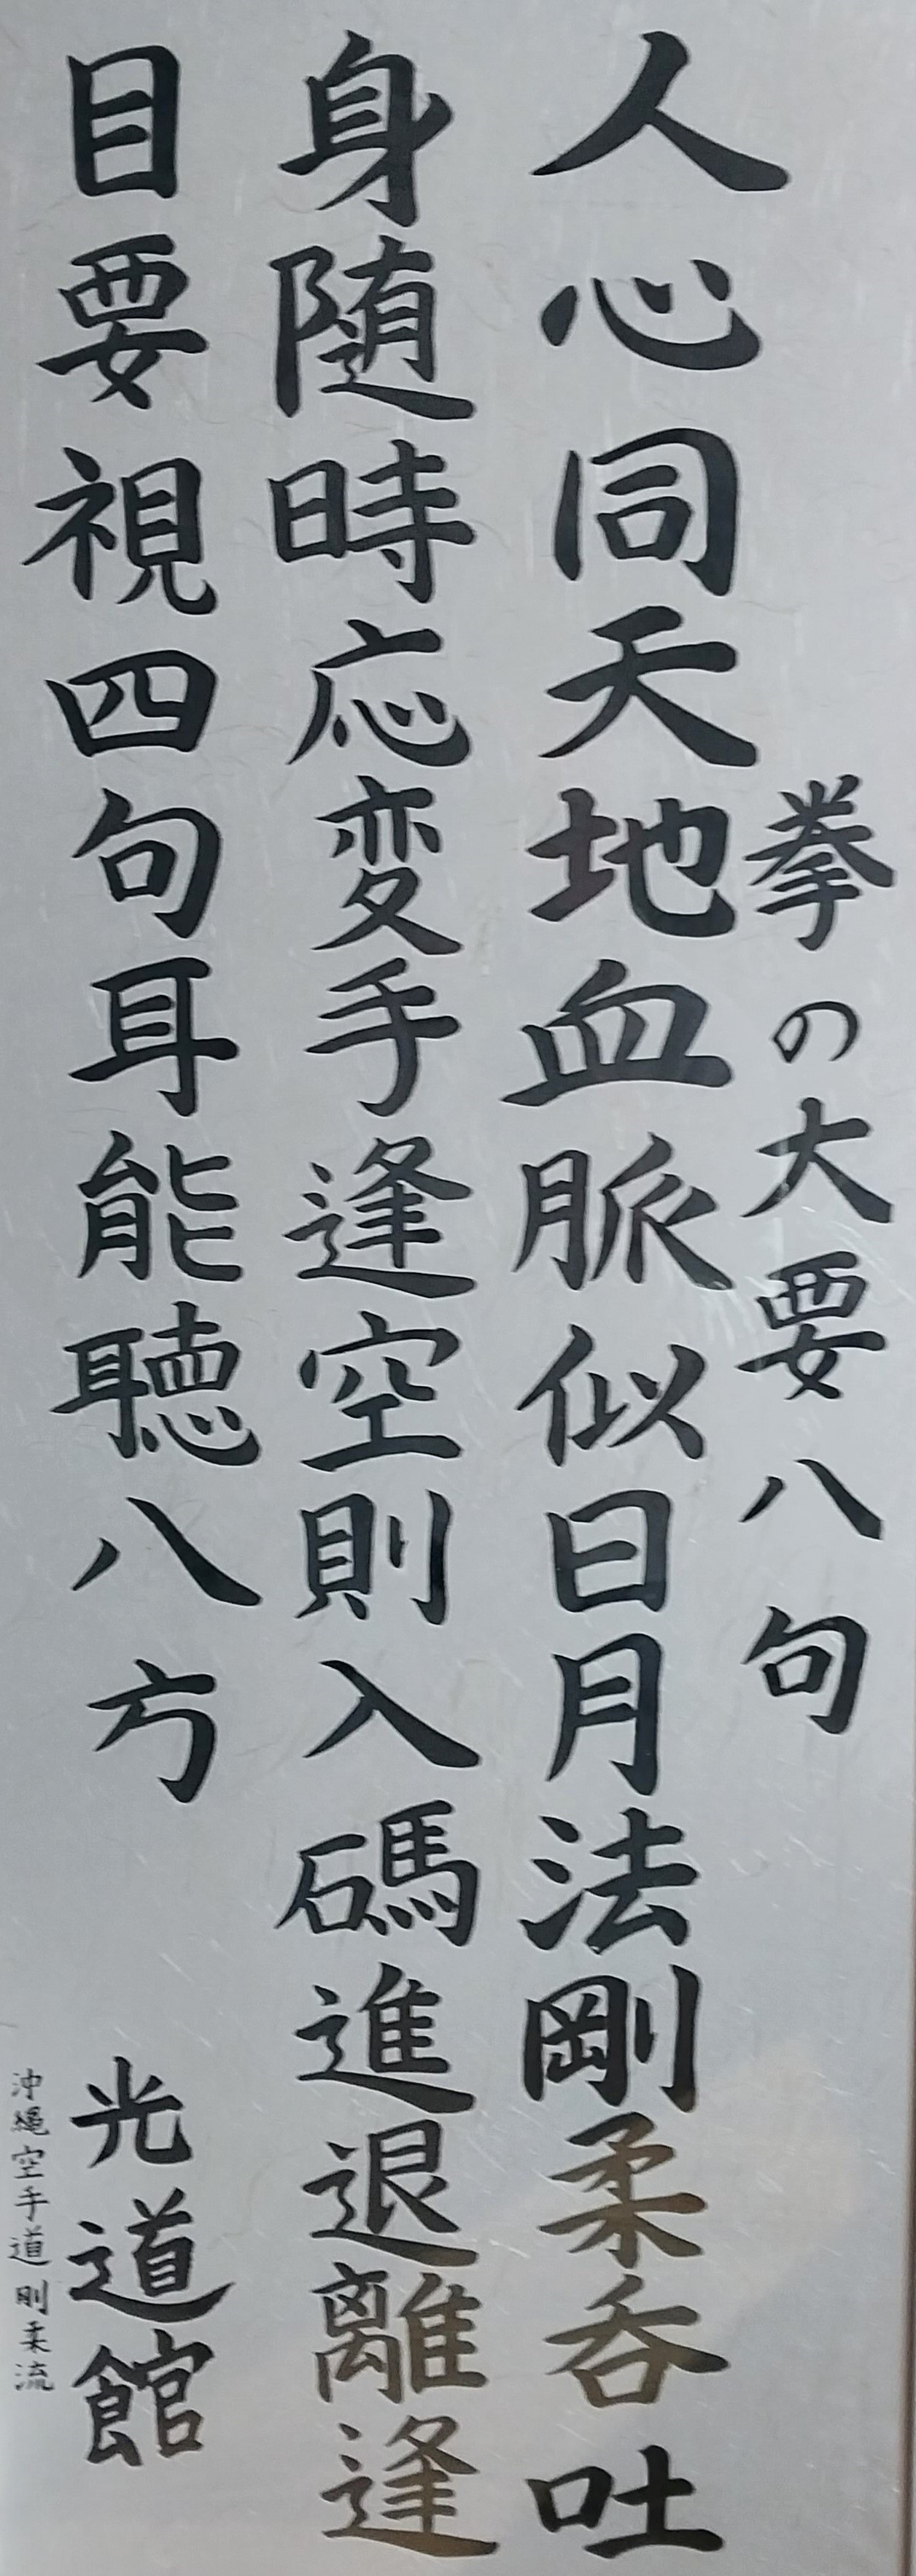 拳の大要八句
人心同天地血脈似日月法剛柔呑吐
身随時応変手逢空則入碼進退離逢
目要視四句耳能聴八方
光道館
沖縄空手道剛柔流